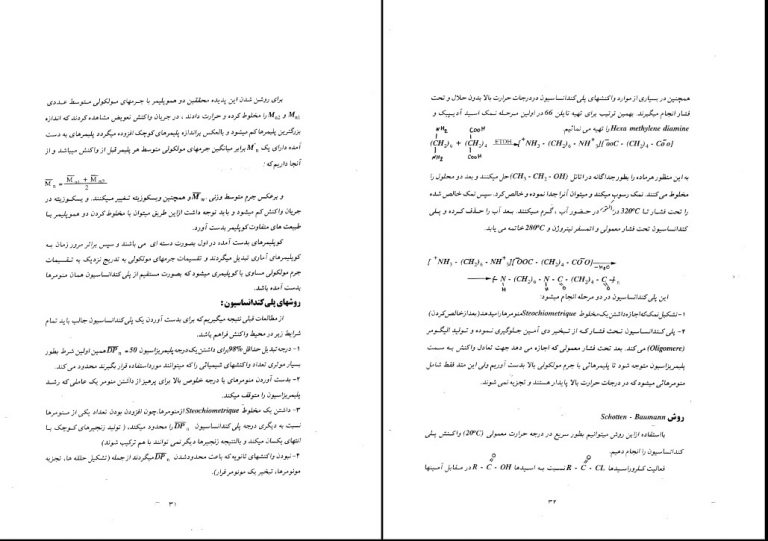 برای روشن شدن این پدیده محققین دو هموپلیمر با جرمهای مولکولی متوسط عددی
M̄n1 و M̄n2 را مخلوط کرده و حرارت دادند ، در جریان واکنش تعویض مشاهده کردند که اندازه
بزرگترین پلیمرها کم میشود و بالعکس براندازه پلیمرهای کوچک افزوده میگردد پلیمرهای به دست
آمده دارای یک M̄n برابر میانگین جرمهای مولکولی متوسط هر پلیمر قبل از واکنش میباشد و از
آنجا داریم که :
M̄n = (M̄n1 + M̄n2) / 2
و برعکس جرم متوسط وزنی M̄w و همچنین ویسکوزیته تغییر میکنند. ویسکوزیته در
جریان واکنش کم میشود و باید توجه داشت ازاین طریق میتوان با مخلوط کردن دو هموپلیمر با
طبیعت های متفاوت کوپلیمر بدست آورد.
کوپلیمرهای بدست آمده در اول بصورت دسته ای می باشند و سپس براثر مرور زمان به
کوپلیمرهای آماری تبدیل میگردند و تقسیمات جرمهای مولکولی به تدریج نزدیک به تقسیمات
جرم مولکولی مساوی با کوپلیمری میشود که بصورت مستقیم از پلی کندانساسیون همان منومرها
بدست آمده باشد.
روشهای پلی کندانساسیون :
از مطالعات قبلی نتیجه میگیریم که برای بدست آوردن یک پلی کندانساسیون جالب باید تمام
شرایط زیر در محیط واکنش فراهم باشد.
۱- درجه تبدیل حداقل 98% برای داشتن یک درجه پلیمریزاسیون D̄P̄n = 50 همین اولین شرط بطور
بسیار موثری تعداد واکنشهای شیمیائی را که میتوانند مورداستفاده قرار بگیرند محدود می کند.
۲- بدست آوردن منومرهای با درجه خلوص بالا برای پرهیز از داشتن منومر یک عاملی که رشد
پلیمریزاسیون را متوقف میکند.
۳- داشتن یک مخلوط Steochiometrique از منومرها، چون افزودن بودن تعداد یکی از منومرها
نسبت به دیگری درجه پلی کندانساسیون D̄P̄n را محدود میکند، ( تولید زنجیرهای کوچک با
انتهای یکسان میکند و بالنتیجه زنجیرها دیگر نمی توانند با هم ترکیب شوند)
۴- نبودن واکنشهای ثانویه که باعث محدودشدن D̄P̄n میگردند از جمله (تشکیل حلقه ها، تجزیه
مونومرها، تبخیر یک مونومر فرار).
۳۱
همچنین در بسیاری از موارد واکنشهای پلی کندانساسیون دردرجات حرارت بالا بدون حلال و تحت
فشار انجام میگیرند. بهمین ترتیب برای تهیه نایلن 66 در اولین مرحله نمک اسید آدیپیک و
Hexa methylene diamine را تهیه می نمائیم.
NH2 COOH
(CH2)6 + (CH2)4 ETOH→ [+NH3 - (CH2)6 - NH+3][-ooC - (CH2)4 - Coo-]
NH2 COOH
به این منظور هرماده را بطور جداگانه در اتانل (CH3 - CH2 - OH) حل میکنند و بعد دو محلول را
مخلوط می کنند. نمک رسوب میکند و میتوان آنرا جدا نموده و خالص کرد. سپس نمک خالص شده
را تحت فشار تا 320°C در حضور آب ، گرم میکنند. بعد آب را حذف کرده و پلی
کندانساسیون تحت فشار معمولی و اتمسفر نیتروژن و 280°C خاتمه می یابد.
[+NH3 - (CH2)6 - NH+3][-OOC - (CH2)4 - COO-] -H2O→
→ [-N - (CH2)6 - N - C - (CH2)4 - C-]n
H H O O
این پلی کندانساسیون در دو مرحله انجام میشود:
۱- تشکیل نمک که اجازه داشتن یک مخلوط Steochiometrique منومرها را میدهد (بعد از خالص کردن)
۲- پلی کندانساسیون تحت فشار که از تبخیر دی آمین جلوگیری نموده و تولید الیگومر
(Oligomere) می کند. بعد تحت فشار معمولی که اجازه می دهد جهت تعادل واکنش به سمت
پلیمریزاسیون متوجه شود تا پلیمرهائی با جرم مولکولی بالا بدست آوریم ولی این متد فقط شامل
منومرهائی میشود که در درجات حرارت بالا پایدار هستند و تجزیه نمی شوند.
روش Schotten - Baumann
بااستفاده ازاین روش میتوانیم بطور سریع در درجه حرارت معمولی (20°C) واکنش پلی
کندانساسیون را انجام دهیم.
O O
فعالیت کلروراسیدها R - C - CL نسبت به اسیدها R - C - OH در مقابل آمینها
۳۲